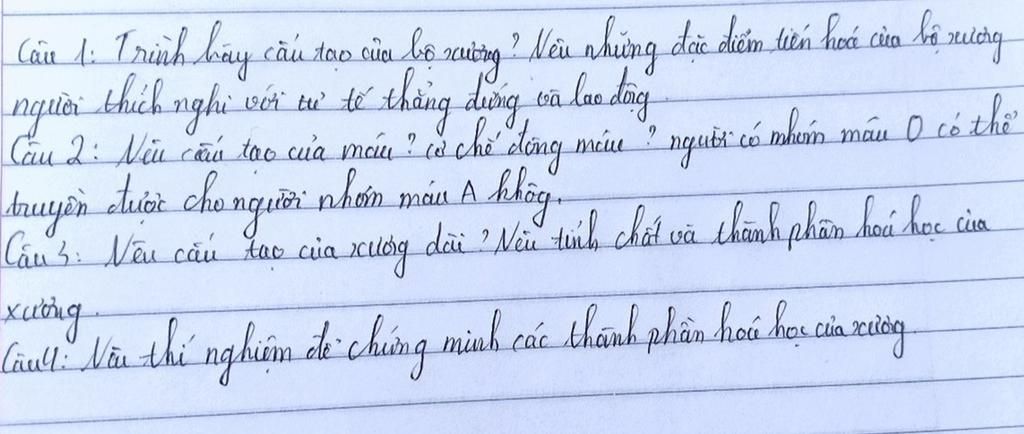 Câu 1: Trình bày cấu tạo của bộ xương? Nêu những đặc điểm tiến hoá của bộ xương
người thích nghi với tư tế thẳng đứng và lao động.
Câu 2: Nêu cấu tạo của máu? cơ chế đông máu? người có nhóm máu O có thể
truyền được cho người nhóm máu A khôg.
Câu 3: Nêu cấu tạo của xương dài? Nêu tính chất và thành phần hoá học của
xương.
Câu 4: Nêu thí nghiệm để chứng minh các thành phần hoá học của xương.